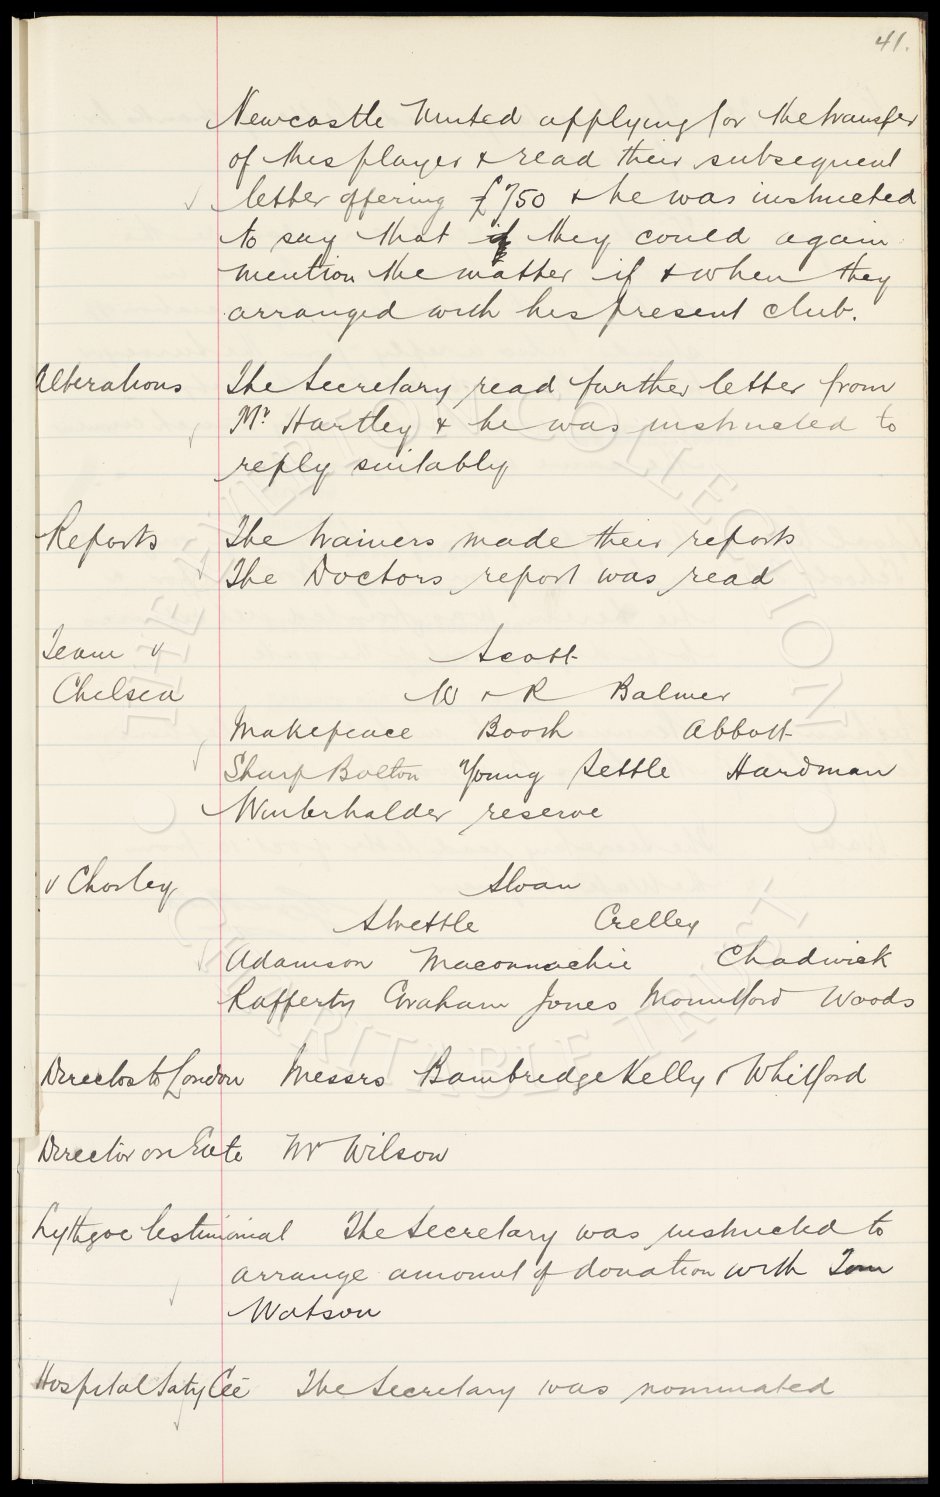 41.
Newcastle United applying for the transfer
of this player & read their subsequent
letter offering £750 & he was instructed
to say that if they could again
mention the matter if & when they
arranged with his present club.
Alterations The Secretary read further letter from
Mr Hartley & he was instructed to
reply suitably
Reports The trainers made their reports
The Doctors report was read
Team v Scott
Chelsea W & R Balmer
Makepeace Booth Abbott
Sharp Bolton Young Settle Hardman
Winterhalder reserve
v Chorley Sloan
Strettle Crelley
Adamson Maconnachie Chadwick
Rafferty Graham Jones Mountford Woods
Directors to London Messrs Bambridge Kelly & Whitford
Director on Gate Mr Wilson
Lythgoe testimonial The Secretary was instructed to
arrange amount of donation with Tom
Watson
Hospital Saty Cee The Secretary was nominated
THE EVERTON COLLECTION
CHARITABLE TRUST